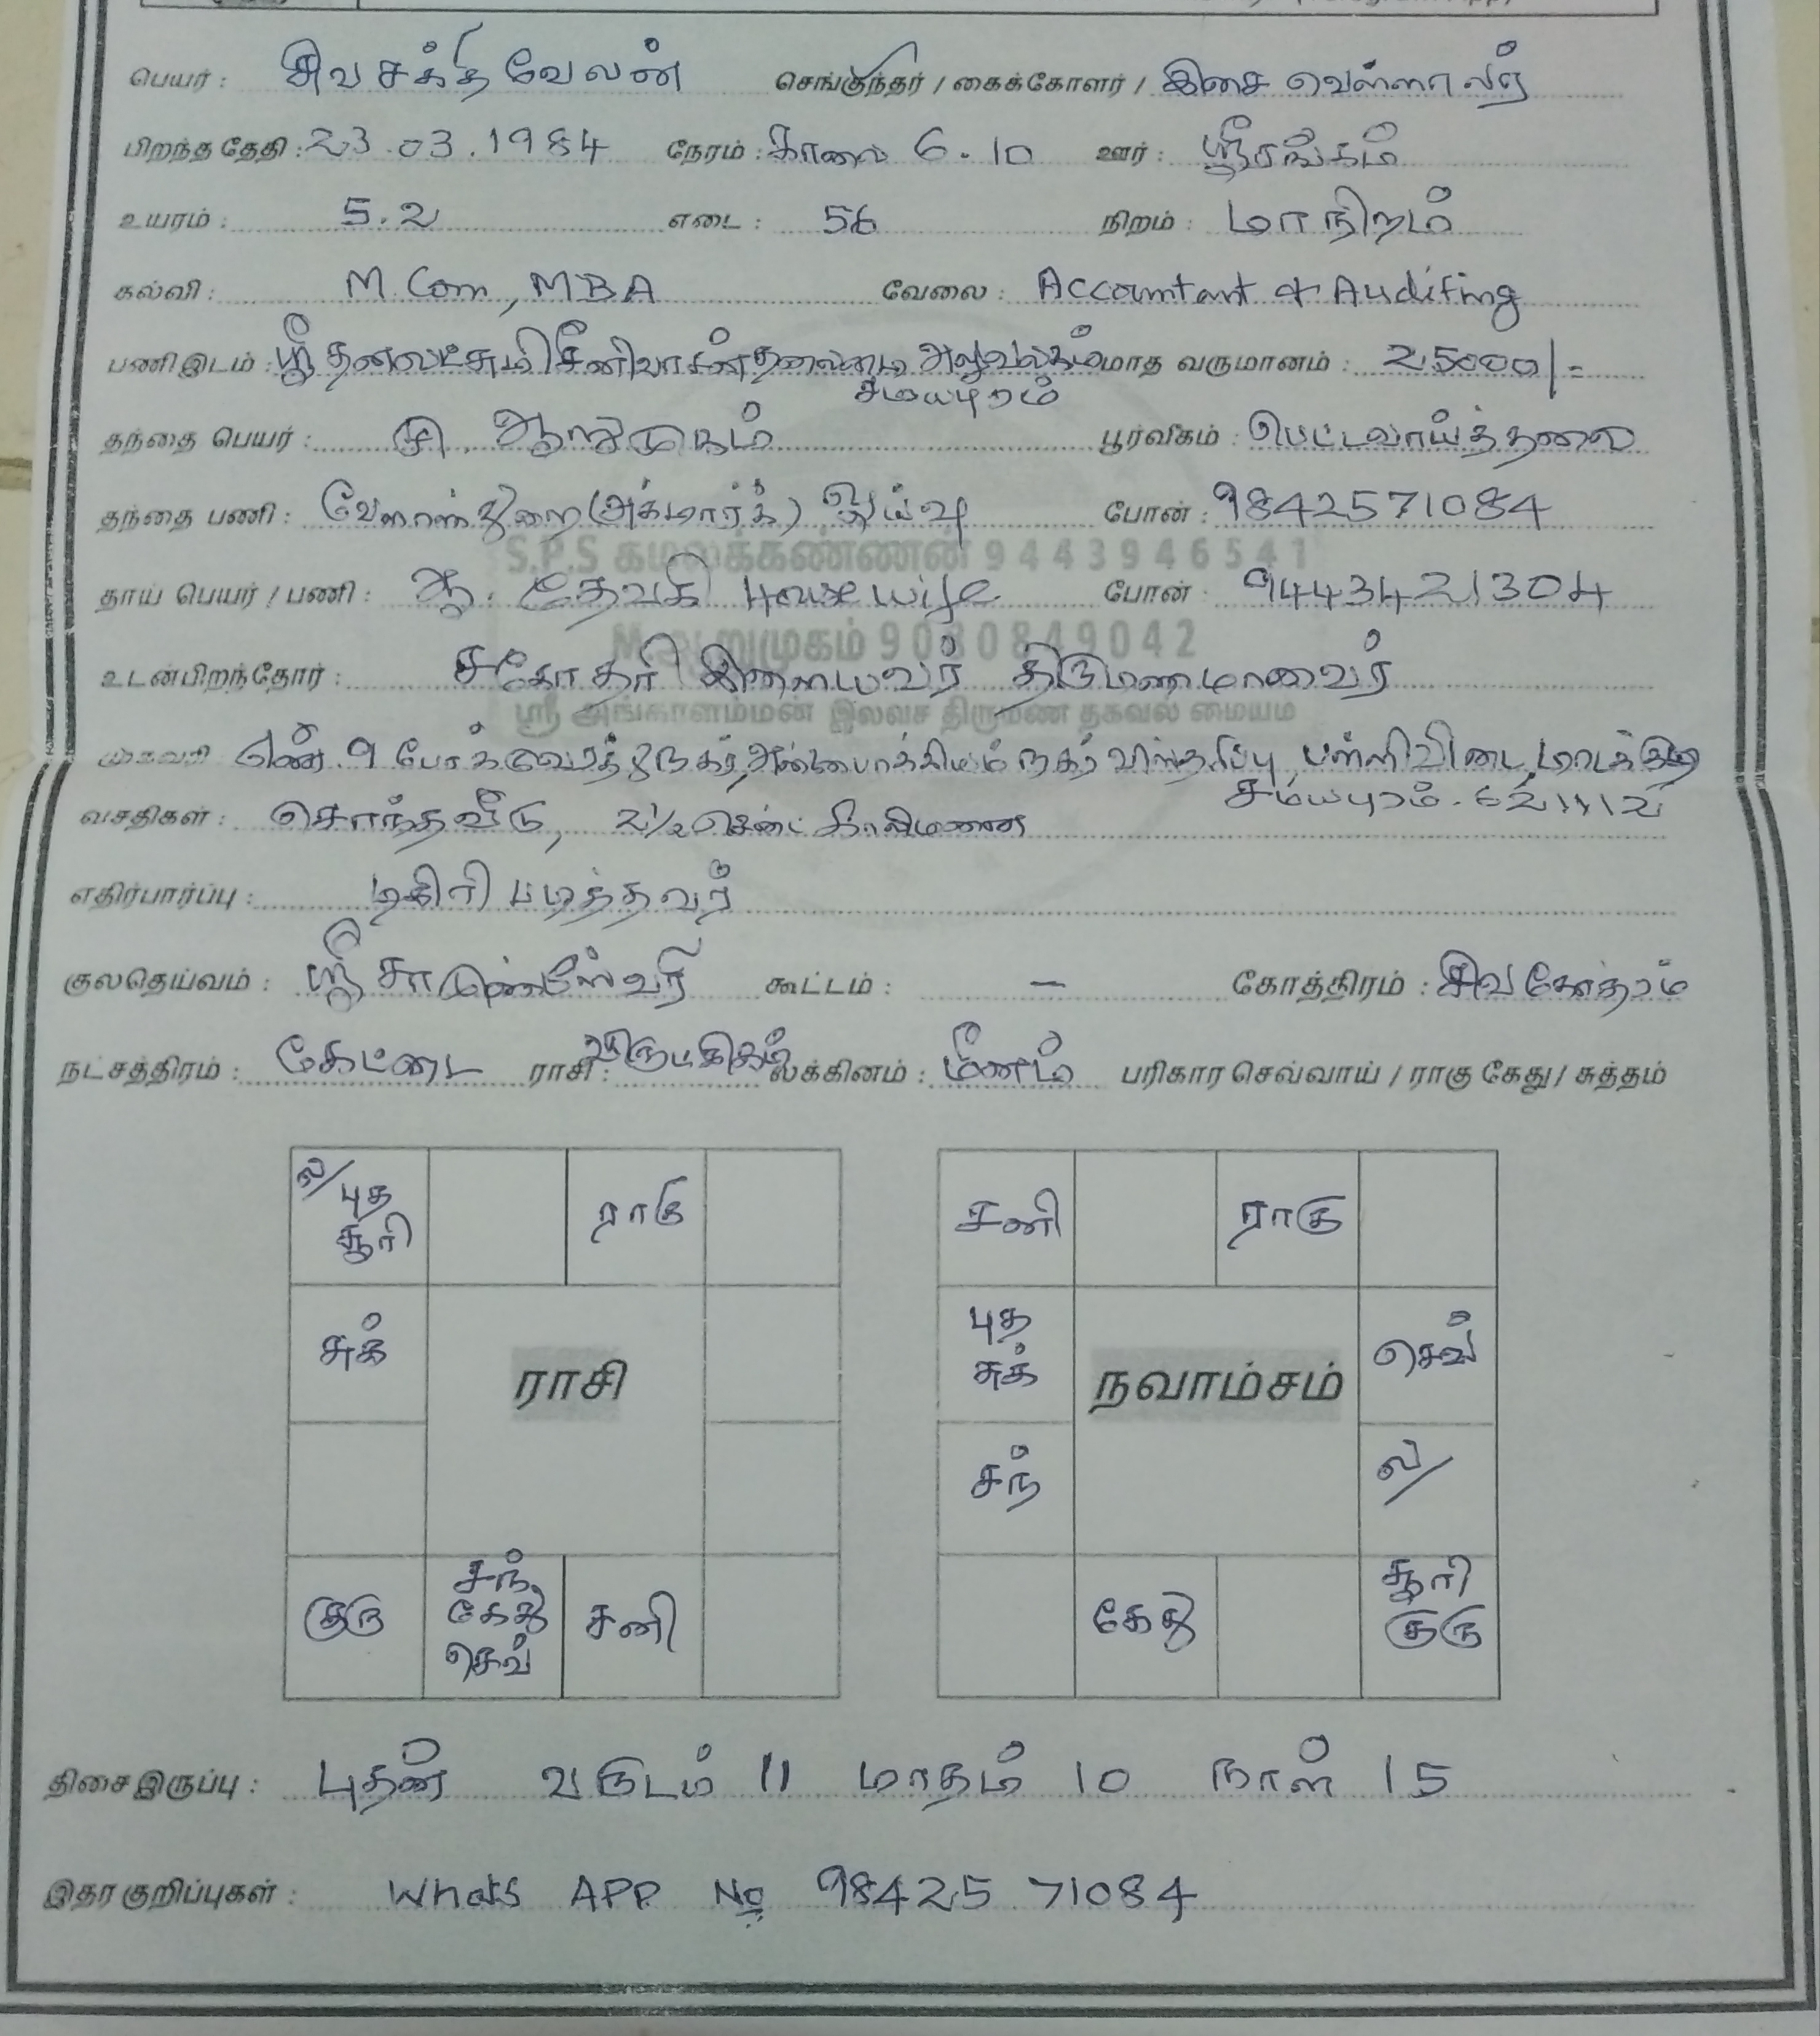 பெயர் : சிவசக்தி வேலன் செங்குந்தர் / கைக்கோளர் / இசை வெள்ளாளர்
பிறந்த தேதி : 23.03.1984 நேரம் : காலை 6.10 ஊர் : ஸ்ரீரங்கம்
உயரம் : 5.2 எடை : 56 நிறம் : மாநிறம்
கல்வி : M.Com, MBA வேலை : Accountant & Auditing
பணி இடம் : ஸ்ரீ தனலட்சுமி சீனிவாசன் தலைமை அலுவலகம் மாத வருமானம் : 25000/=
சமயபுரம்
தந்தை பெயர் : சி. ஆறுமுகம் பூர்வீகம் : பெட்டவாய்த்தலை
தந்தை பணி : வேளாண்துறை (அக்மார்க்) ஓய்வு போன் : 9842571084
S.P.S கமலக்கண்ணன் 9443946541
தாய் பெயர் / பணி : ஆ. தேவகி House wife போன் : 9443421304
M.ஆறுமுகம் 9080849042
உடன்பிறந்தோர் : சகோதரி இளையவர் திருமணமானவர்
ஸ்ரீ அங்காளம்மன் இலவச திருமண தகவல் மையம்
முகவரி எண். 9 போக்குவரத்து நகர், அன்பாக்கியம் நகர் விஸ்தரிப்பு, பள்ளிவிடை,
சமயபுரம். 621112
வசதிகள் : சொந்தவீடு, 2½ சென்ட் காலிமனை
எதிர்பார்ப்பு : டிகிரி படித்தவர்
குலதெய்வம் : ஸ்ரீ கூட்டம் : — கோத்திரம் : சிவகோத்ரம்
நட்சத்திரம் : கேட்டை ராசி : விருட்சிகம் லக்கினம் : மீனம் பரிகார செவ்வாய் / ராகு கேது / சுத்தம்
ல/ புத சூரி ராகு
சுக்
ராசி
குரு சந் கேது செவ் சனி
சனி ராகு
புத சுக் செவ்
நவாம்சம்
சந் ல/
கேது சூரி குரு
திசை இருப்பு : புதன் வருடம் 11 மாதம் 10 நாள் 15
இதர குறிப்புகள் : Whats APP No 98425 71084